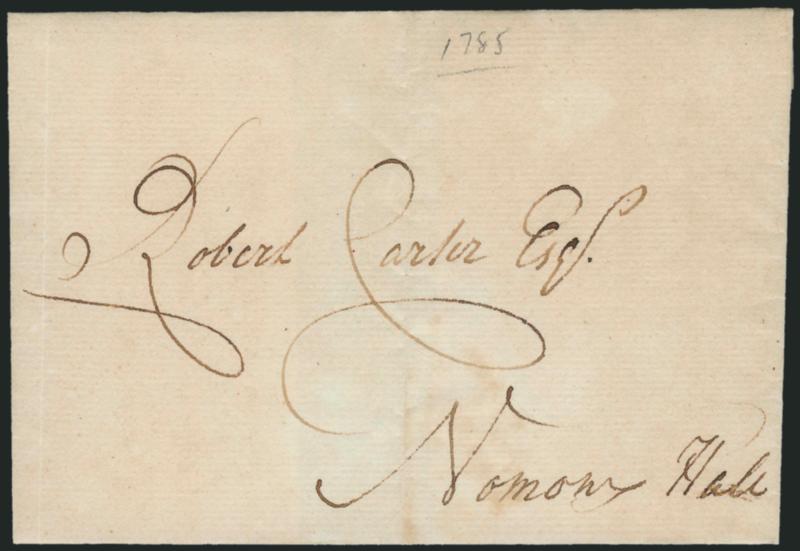 1785
Robert Carter Esqr.
Nomony Hall